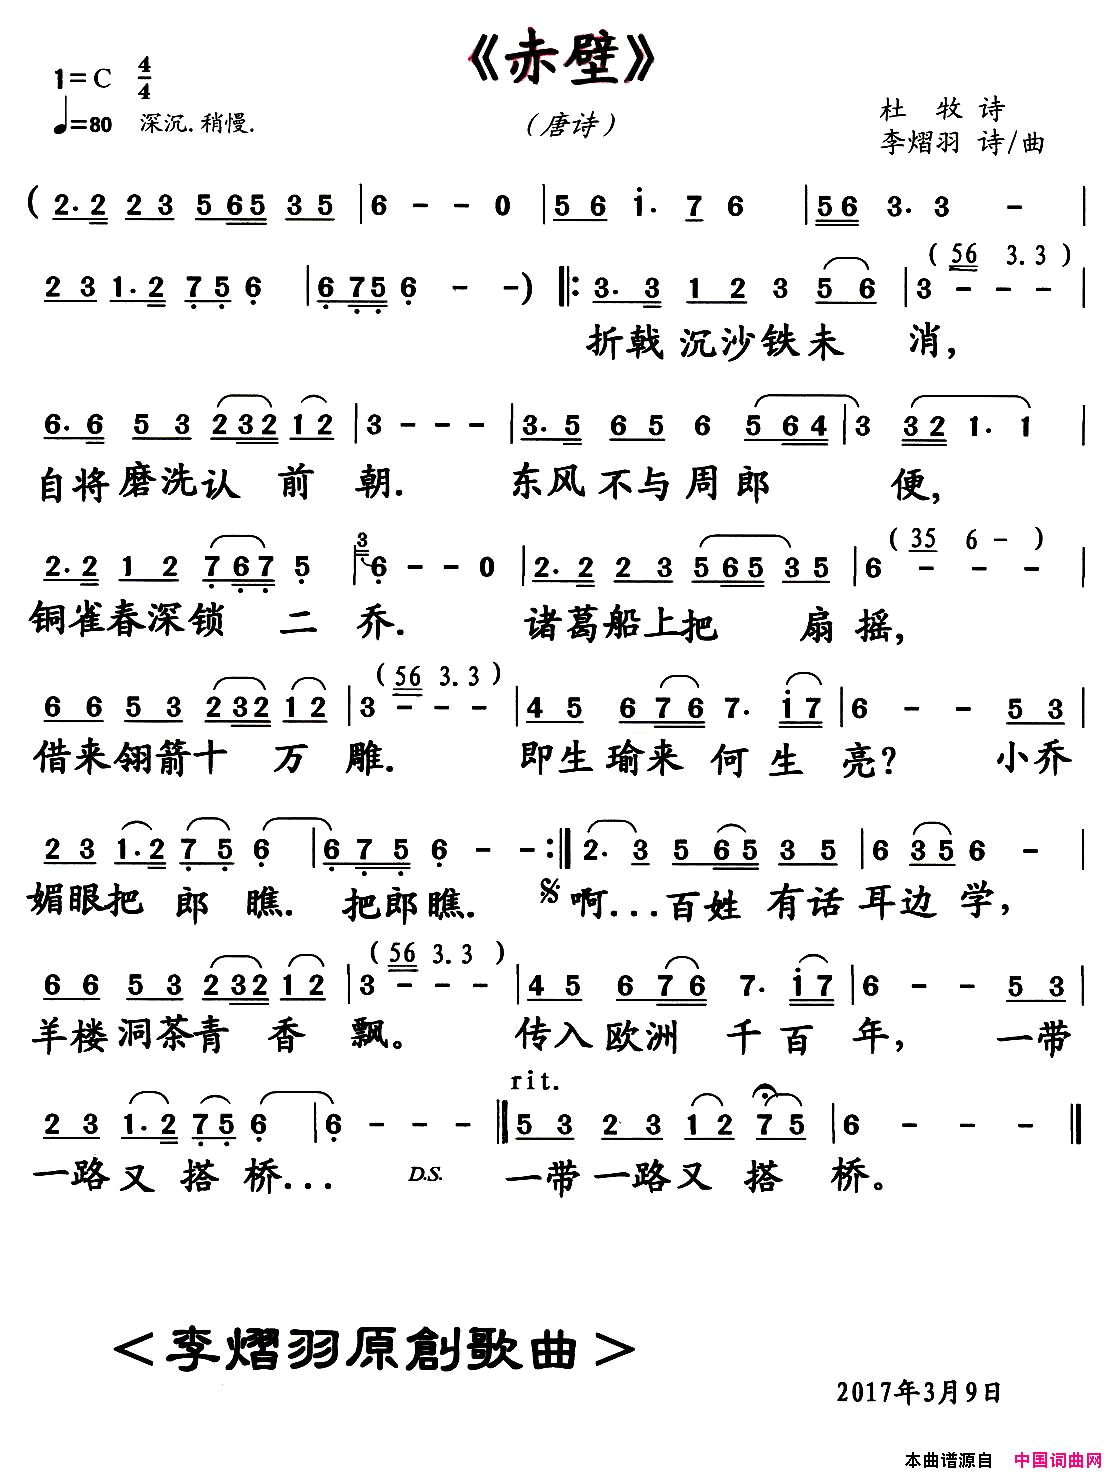 《赤壁》
1=C 4/4
♩=80 深沉.稍慢.
(唐诗)
杜 牧 诗
李熠羽 诗/曲
( 2. 2 2 3 5 6 5 3 5 | 6 - - 0 | 5 6 i. 7 6 | 5 6 3. 3 - |
( 56 3.3 )
2 3 1. 2 7 5 6 | 6 7 5 6 - - ) ‖: 3. 3 1 2 3 5 6 | 3 - - - |
折戟沉沙铁未 消,
6. 6 5 3 2 3 2 1 2 | 3 - - - | 3. 5 6 5 6 5 6 4 | 3 3 2 1. 1 |
自将磨洗认 前 朝. 东风不与周郎 便,
( 35 6 - )
2. 2 1 2 7 6 7 5 | 3 6 - - 0 | 2. 2 2 3 5 6 5 3 5 | 6 - - - |
铜雀春深锁 二 乔. 诸葛船上把 扇 摇,
( 56 3.3 )
6 6 5 3 2 3 2 1 2 | 3 - - - | 4 5 6 7 6 7. i 7 | 6 - - 5 3 |
借来翎箭十 万 雕. 即生瑜来 何 生 亮? 小乔
2 3 1. 2 7 5 6 | 6 7 5 6 - - :‖ 2. 3 5 6 5 3 5 | 6 3 5 6 - |
媚眼把 郎 瞧. 把郎瞧. 𝄋 啊...百姓 有话耳边 学,
( 56 3.3 )
6 6 5 3 2 3 2 1 2 | 3 - - - | 4 5 6 7 6 7. i 7 | 6 - - 5 3 |
羊楼洞茶青 香 飘。 传入欧洲 千 百 年, 一带
rit.
2 3 1. 2 7 5 6 | 6 - - - ‖ 5 3 2 3 1 2 7 5 | 6 - - - ‖
一路又 搭 桥... D.S. 一带一路又 搭 桥。
<李熠羽原創歌曲>
2017年3月9日
本曲谱源自 中国词曲网